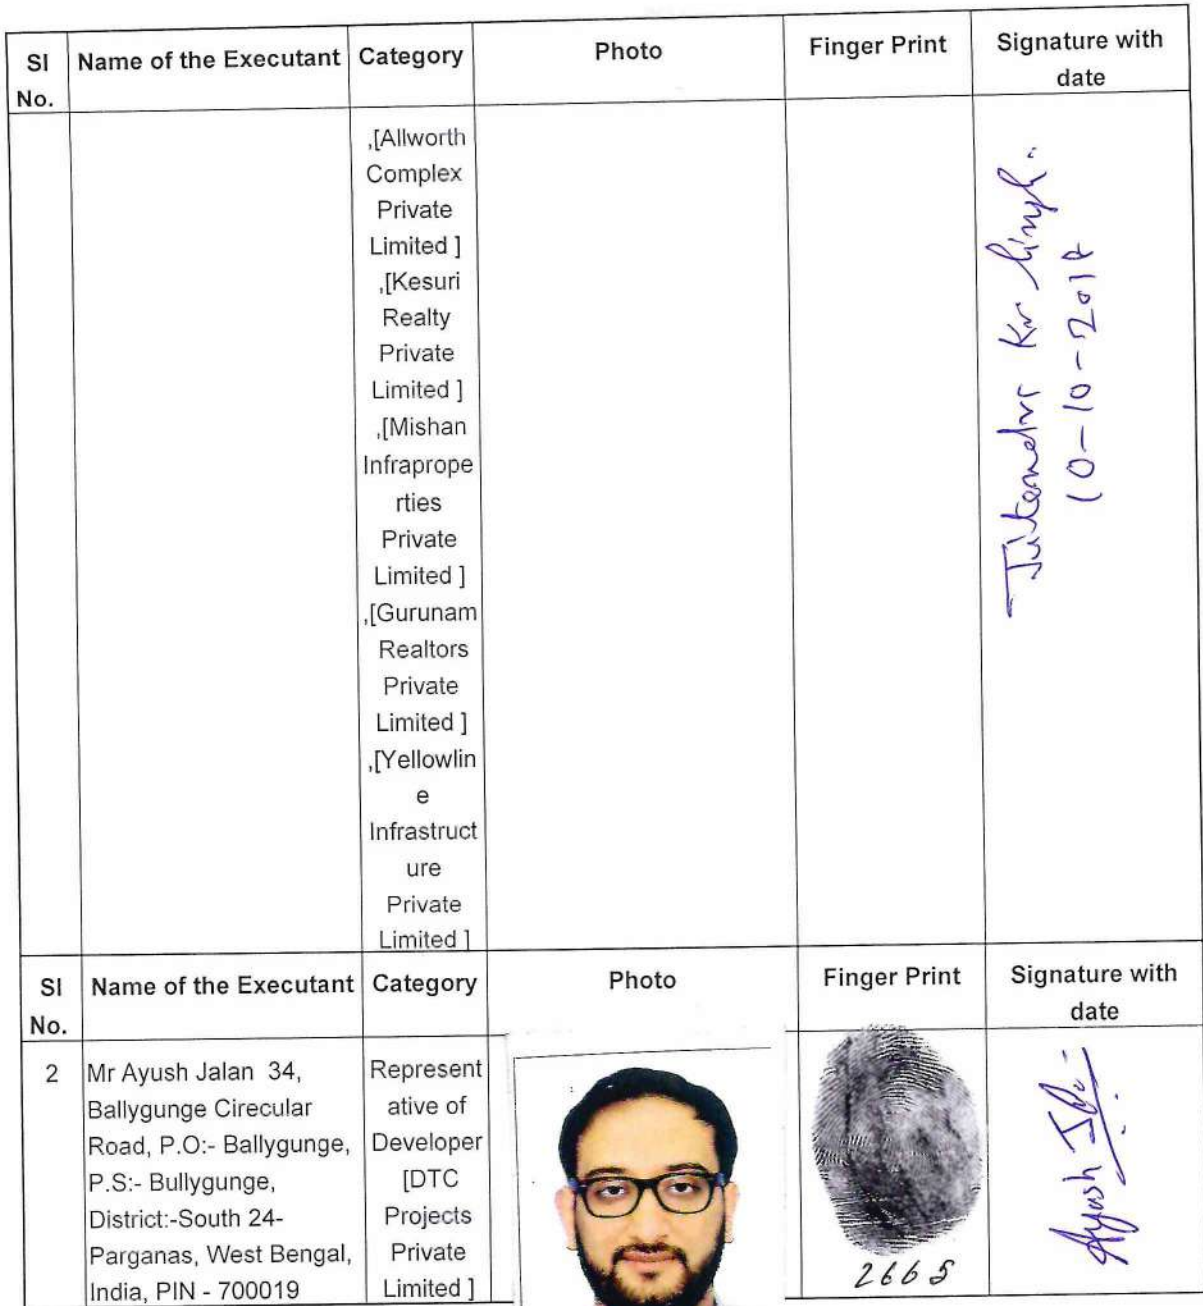 Sl No. Name of the Executant Category Photo Finger Print Signature with date
,[Allworth
Complex
Private
Limited ]
,[Kesuri
Realty
Private
Limited ]
,[Mishan
Infraprope
rties
Private
Limited ]
,[Gurunam
Realtors
Private
Limited ]
,[Yellowlin
e
Infrastruct
ure
Private
Limited ]
Kr Singh
10-10-2018
Sl No. Name of the Executant Category Photo Finger Print Signature with date
2
Mr Ayush Jalan 34,
Ballygunge Cirecular
Road, P.O:- Ballygunge,
P.S:- Bullygunge,
District:-South 24-
Parganas, West Bengal,
India, PIN - 700019
Represent
ative of
Developer
[DTC
Projects
Private
Limited ]
2665
Ayush